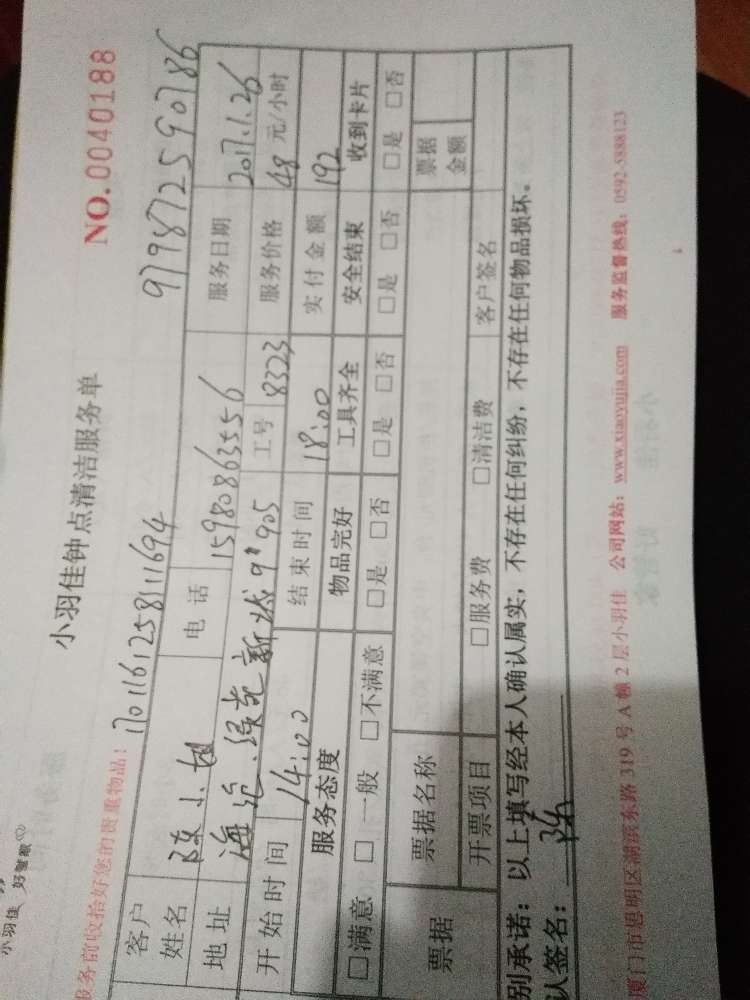 小羽佳 好管家
小羽佳钟点清洁服务单
NO.0040188
服务前收拾好您的贵重物品！
17011612581111694
9798725590786
客户姓名 陈小姐 电话 15980863556 服务日期 2017.1.26
地址 9# 905 工号 8323 服务价格 48 元/小时
开始时间 14:00 结束时间 18:00 实付金额 192
服务态度 物品完好 工具齐全 安全结束 收到卡片
□满意 □一般 □不满意 □是 □否 □是 □否 □是 □否 □是 □否
票据 票据名称 票据金额
开票项目 □服务费 □清洁费 客户签名
别承诺：以上填写经本人确认属实，不存在任何纠纷，不存在任何物品损坏。
认签名： 陈
厦门市思明区湖滨东路319号A幢2层小羽佳 公司网站：www.xiaoyujia.com 服务监督热线：0592-5888123